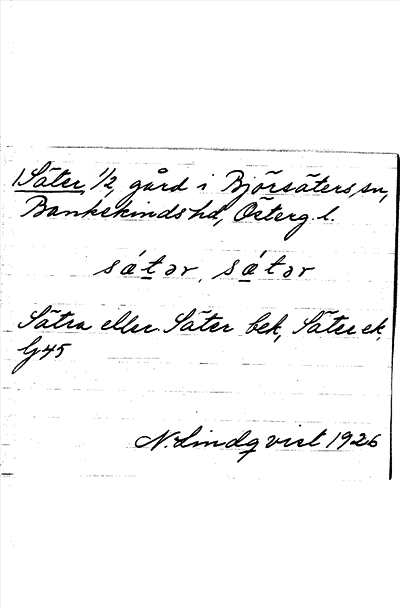 1 Säter, 1/2 gård i Björsäters sn,
Bankekinds hd, Österg. l.
sátər, sǽtər
Sätra eller Säter bek, Säter ek.
G45
N. Lindqvist 1926